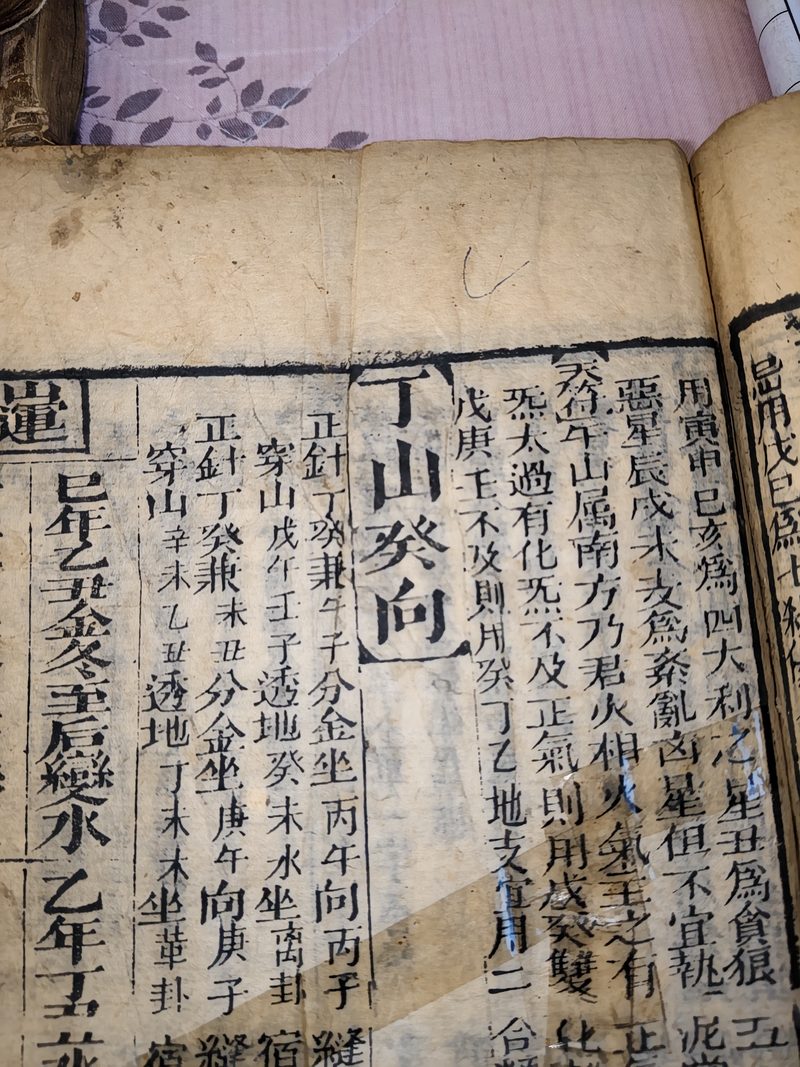 忌用戊巳爲七
用寅申巳亥爲四大利之星丑爲貪狼五
惡星辰戌未支爲紊亂凶星但不宜執泥
天符午山属南方乃君火相火氣主之有正
炁太過有化炁不及正氣則用戊癸雙化
戊庚壬不及則用癸丁乙地支宜用二合
丁山癸向
正針丁癸兼午子分金坐丙午向丙子縫
穿山戊午壬子透地癸未水坐离卦宿
正針丁癸兼未丑分金坐庚午向庚子縫
穿山辛未乙丑透地丁未木坐革卦宿
山運
巳年乙丑金冬至后變水乙年丁丑